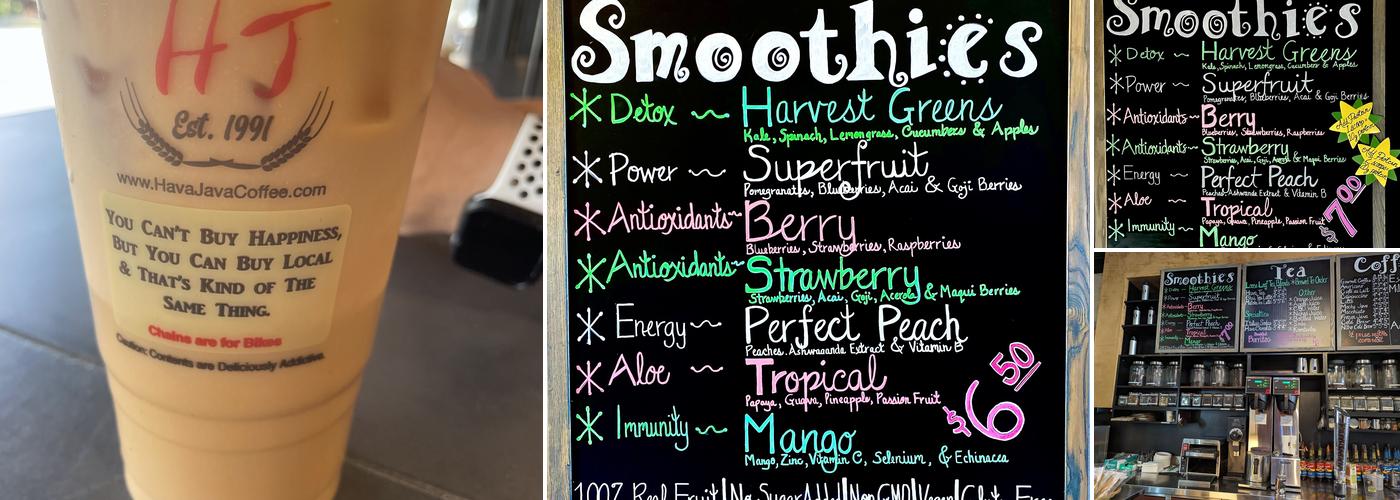 HJ
Est. 1991
www.HavaJavaCoffee.com
You Can't Buy Happiness,
But You Can Buy Local
& That's Kind of The
Same Thing.
Chains are for Bikes
Caution: Contents are Deliciously Addictive.
Smoothies
Detox ~ Harvest Greens
Kale, Spinach, Lemongrass, Cucumbers & Apples
Power ~ Superfruit
Pomegranates, Blueberries, Acai & Goji Berries
Antioxidants~ Berry
Blueberries, Strawberries, Raspberries
Antioxidants~ Strawberry
Strawberries, Acai, Goji, Acerola & Maqui Berries
Energy ~ Perfect Peach
Peaches, Ashwaganda Extract & Vitamin B
Aloe ~ Tropical
Papaya, Guava, Pineapple, Passion Fruit
Immunity ~ Mango
Mango, Zinc, Vitamin C, Selenium, & Echinacea
$6.50
100% Real Fruit | No Sugar Added | Non GMO | Vegan |
Smoothies
Detox ~ Harvest Greens
Kale, Spinach, Lemongrass, Cucumbers & Apples
Power ~ Superfruit
Pomegranates, Blueberries, Acai & Goji Berries
Antioxidants~ Berry
Blueberries, Strawberries, Raspberries
Antioxidants~ Strawberry
Strawberries, Acai, Goji, Acerola & Maqui Berries
Energy ~ Perfect Peach
Peaches, Ashwanda Extract & Vitamin B
Aloe ~ Tropical
Papaya, Guava, Pineapple, Passion Fruit
Immunity ~ Mango
$7.00
Smoothies
Harvest Greens
Superfruit
Berry
Strawberry
Perfect Peach
Tropical
Mango
Tea
Other
Coff